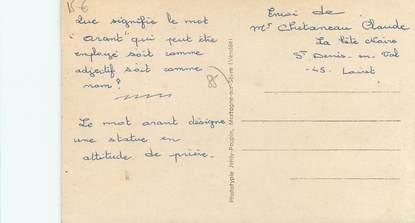 Que signifie le mot
"orant" qui peut être
employé soit comme
adjectif soit comme
nom?
Le mot orant désigne
une statue en
attitude de prière.
8
Phototypie Jehly-Poupin, Mortagne-sur-Sèvre (Vendée)
Envoi de
Mr Chetaneau Claude
La Côte
St Denis. en. Val
-45. Loiret